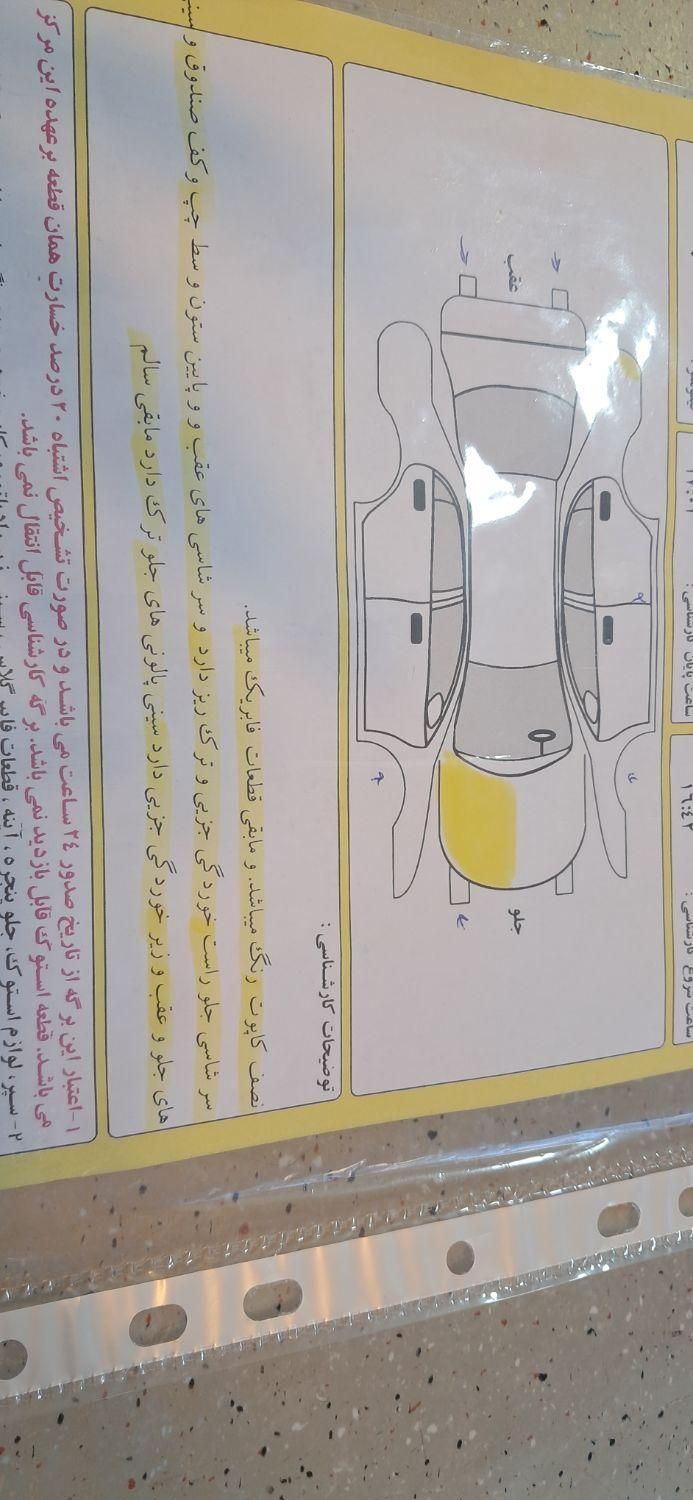 ساعت شروع کارشناسی :
۱۶:۴۲
ساعت پایان کارشناسی :
عقب
جلو
توضیحات کارشناسی :
نصف کاپوت رنگ میباشد. و مابقی قطعات فابریک میباشد.
سر شاسی جلو راست خوردگی جزیی و ترک ریز دارد و سر شاسی های عقب و و پایین ستون وسط چپ و کف صندوق و سینی
های جلو و عقب و زیر خوردگی جزیی دارد سینی پالونی های جلو ترک دارد مابقی سالم
۱-اعتبار این برگه از تاریخ صدور ۲۴ ساعت می باشد و در صورت تشخیص اشتباه ۲۰ درصد خسارت همان قطعه بر عهده این مرکز
می باشد. قطعه استوک قابل بازدید نمی باشد. برگه کارشناسی قابل انتقال نمی باشد.
۲- سپر، لوازم استوک، جلو پنجره، آینه، قطعات فایبرگلاس